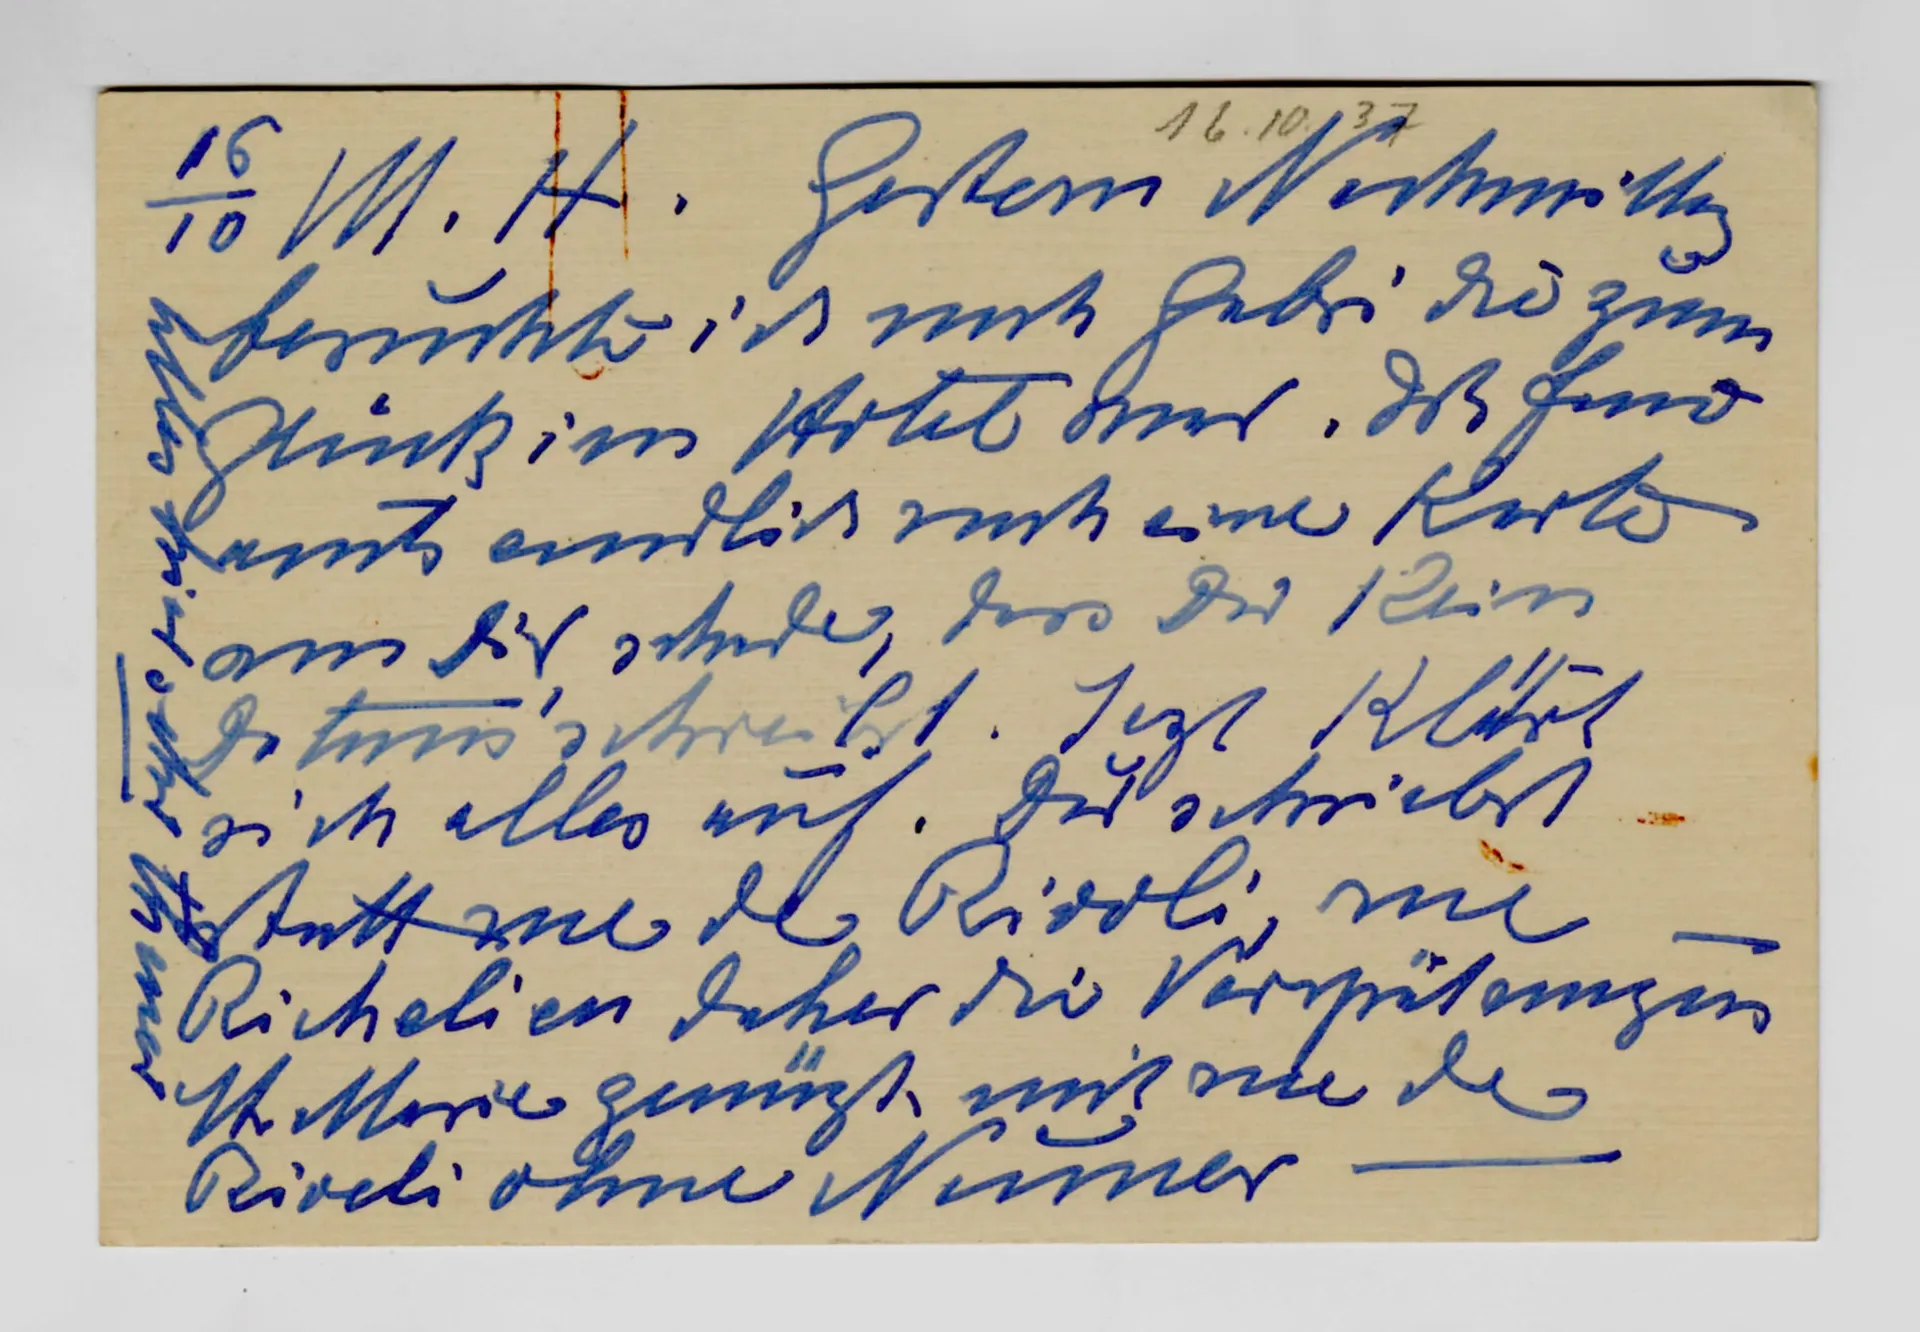 16.10.37
16/10 M. H. Gestern Nachmittag
besuchte ich noch Gabri die zum
Glück im Hotel war. Dß fand
endlich auch eine Karte
von Dir, schade, dass Du kein
Datum schreibst. Jezt klärt
sich alles auf. Du schriebst
statt rue de Rivoli, rue
Richelieu daher die Verspätung
St. Marie genügt, mit rue de
Rivoli ohne Numer